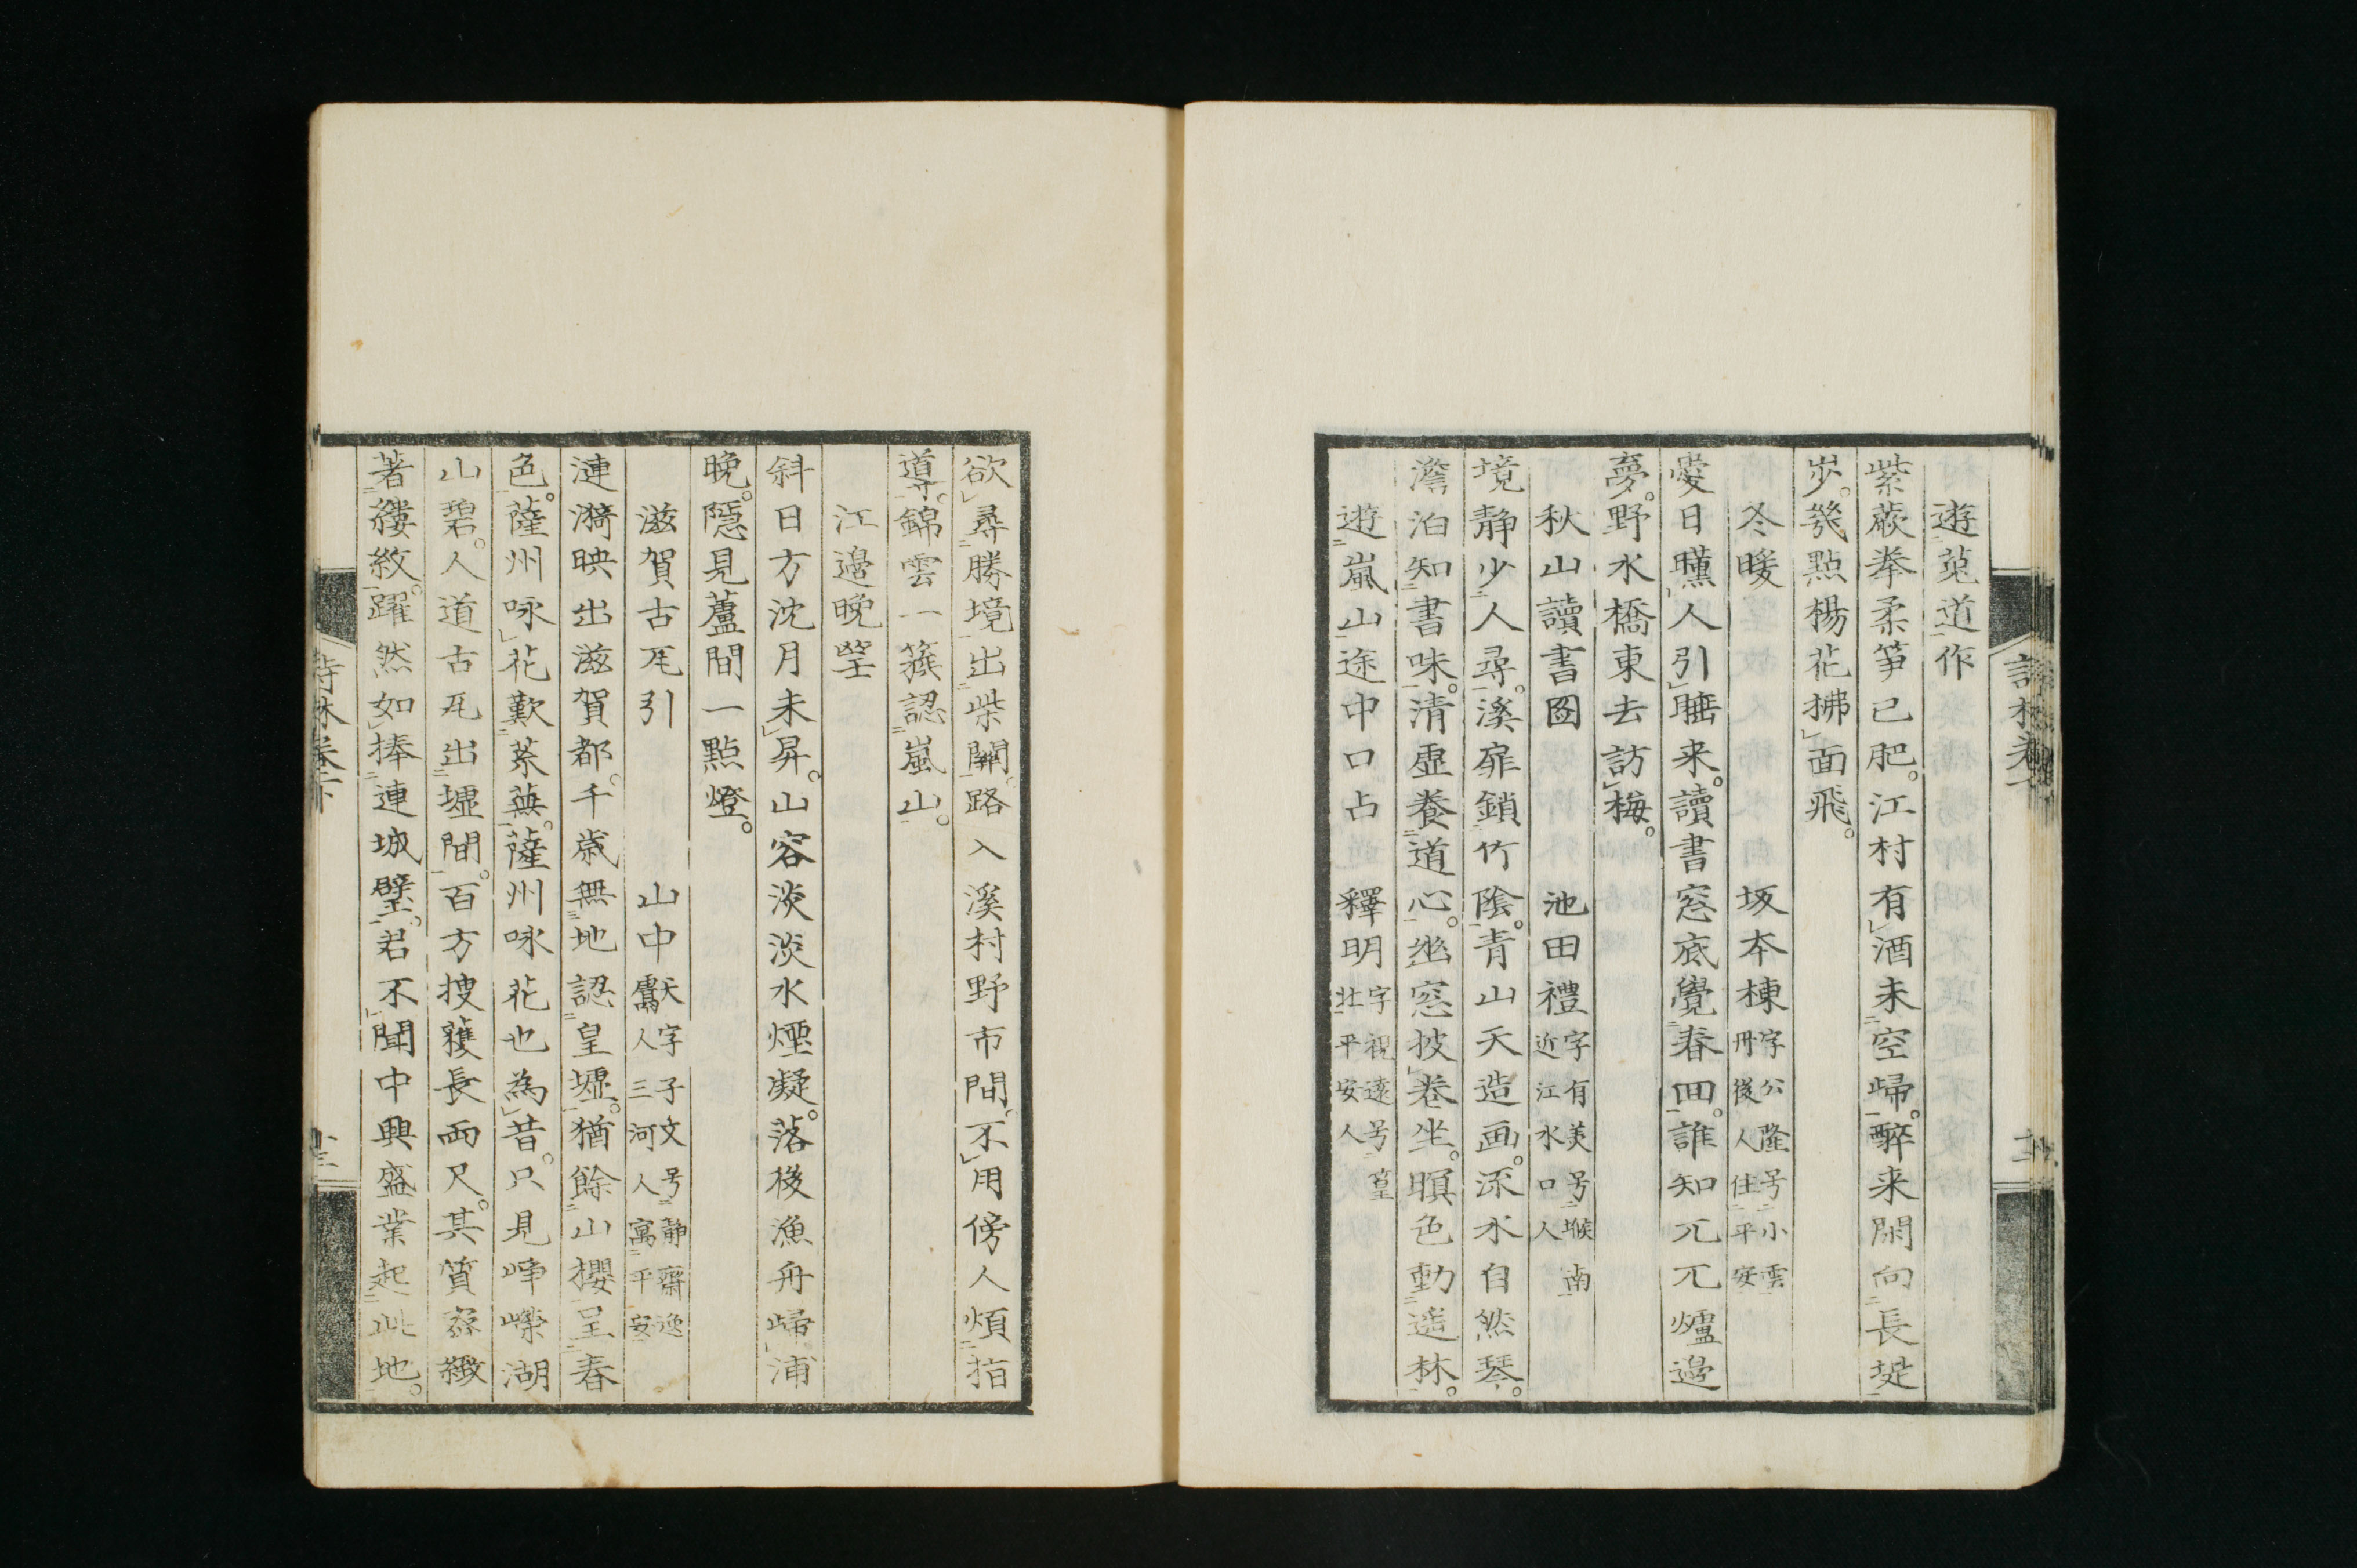 遊菟道作
紫蕨拳柔笋已肥。江村有酒未空歸。醉来閑向長堤
歩。幾點楊花拂面飛。
冬暖 坂本棟字公隆号小雲丹後人住平安
愛日曛人引睡来。讀書窓底覺春回。誰知兀兀爐邊
夢。野水橋東去訪梅。
秋山讀書圖 池田禮字有美号堠南近江水口人
境静少人尋。溪扉鎖竹陰。青山天造画。流水自然琴。
澹泊知書味。清虚養道心。幽窓披卷坐。暝色動遥林。
遊嵐山途中口占 釋明字視遠号篁壮平安人
欲尋勝境出柴關。路入溪村野市間。不用傍人煩指
導。錦雲一簇認嵐山。
江邉晩望
斜日方沈月未昇。山容淡淡水煙凝。落後漁舟歸浦
晩。隱見蘆間一點燈。
滋賀古瓦引 山中獻字子文号静齋逸人三河人寓平安
漣漪映出滋賀都。千歳無地認皇墟。猶餘山櫻呈春
色。薩州咏花歎荼蕪。薩州咏花也為昔。只見崢嶸湖
山碧。人道古瓦出墟間。百方捜獲長両尺。其質緻
著縷紋。躍然如捧連城璧。君不聞中興盛業起此地。